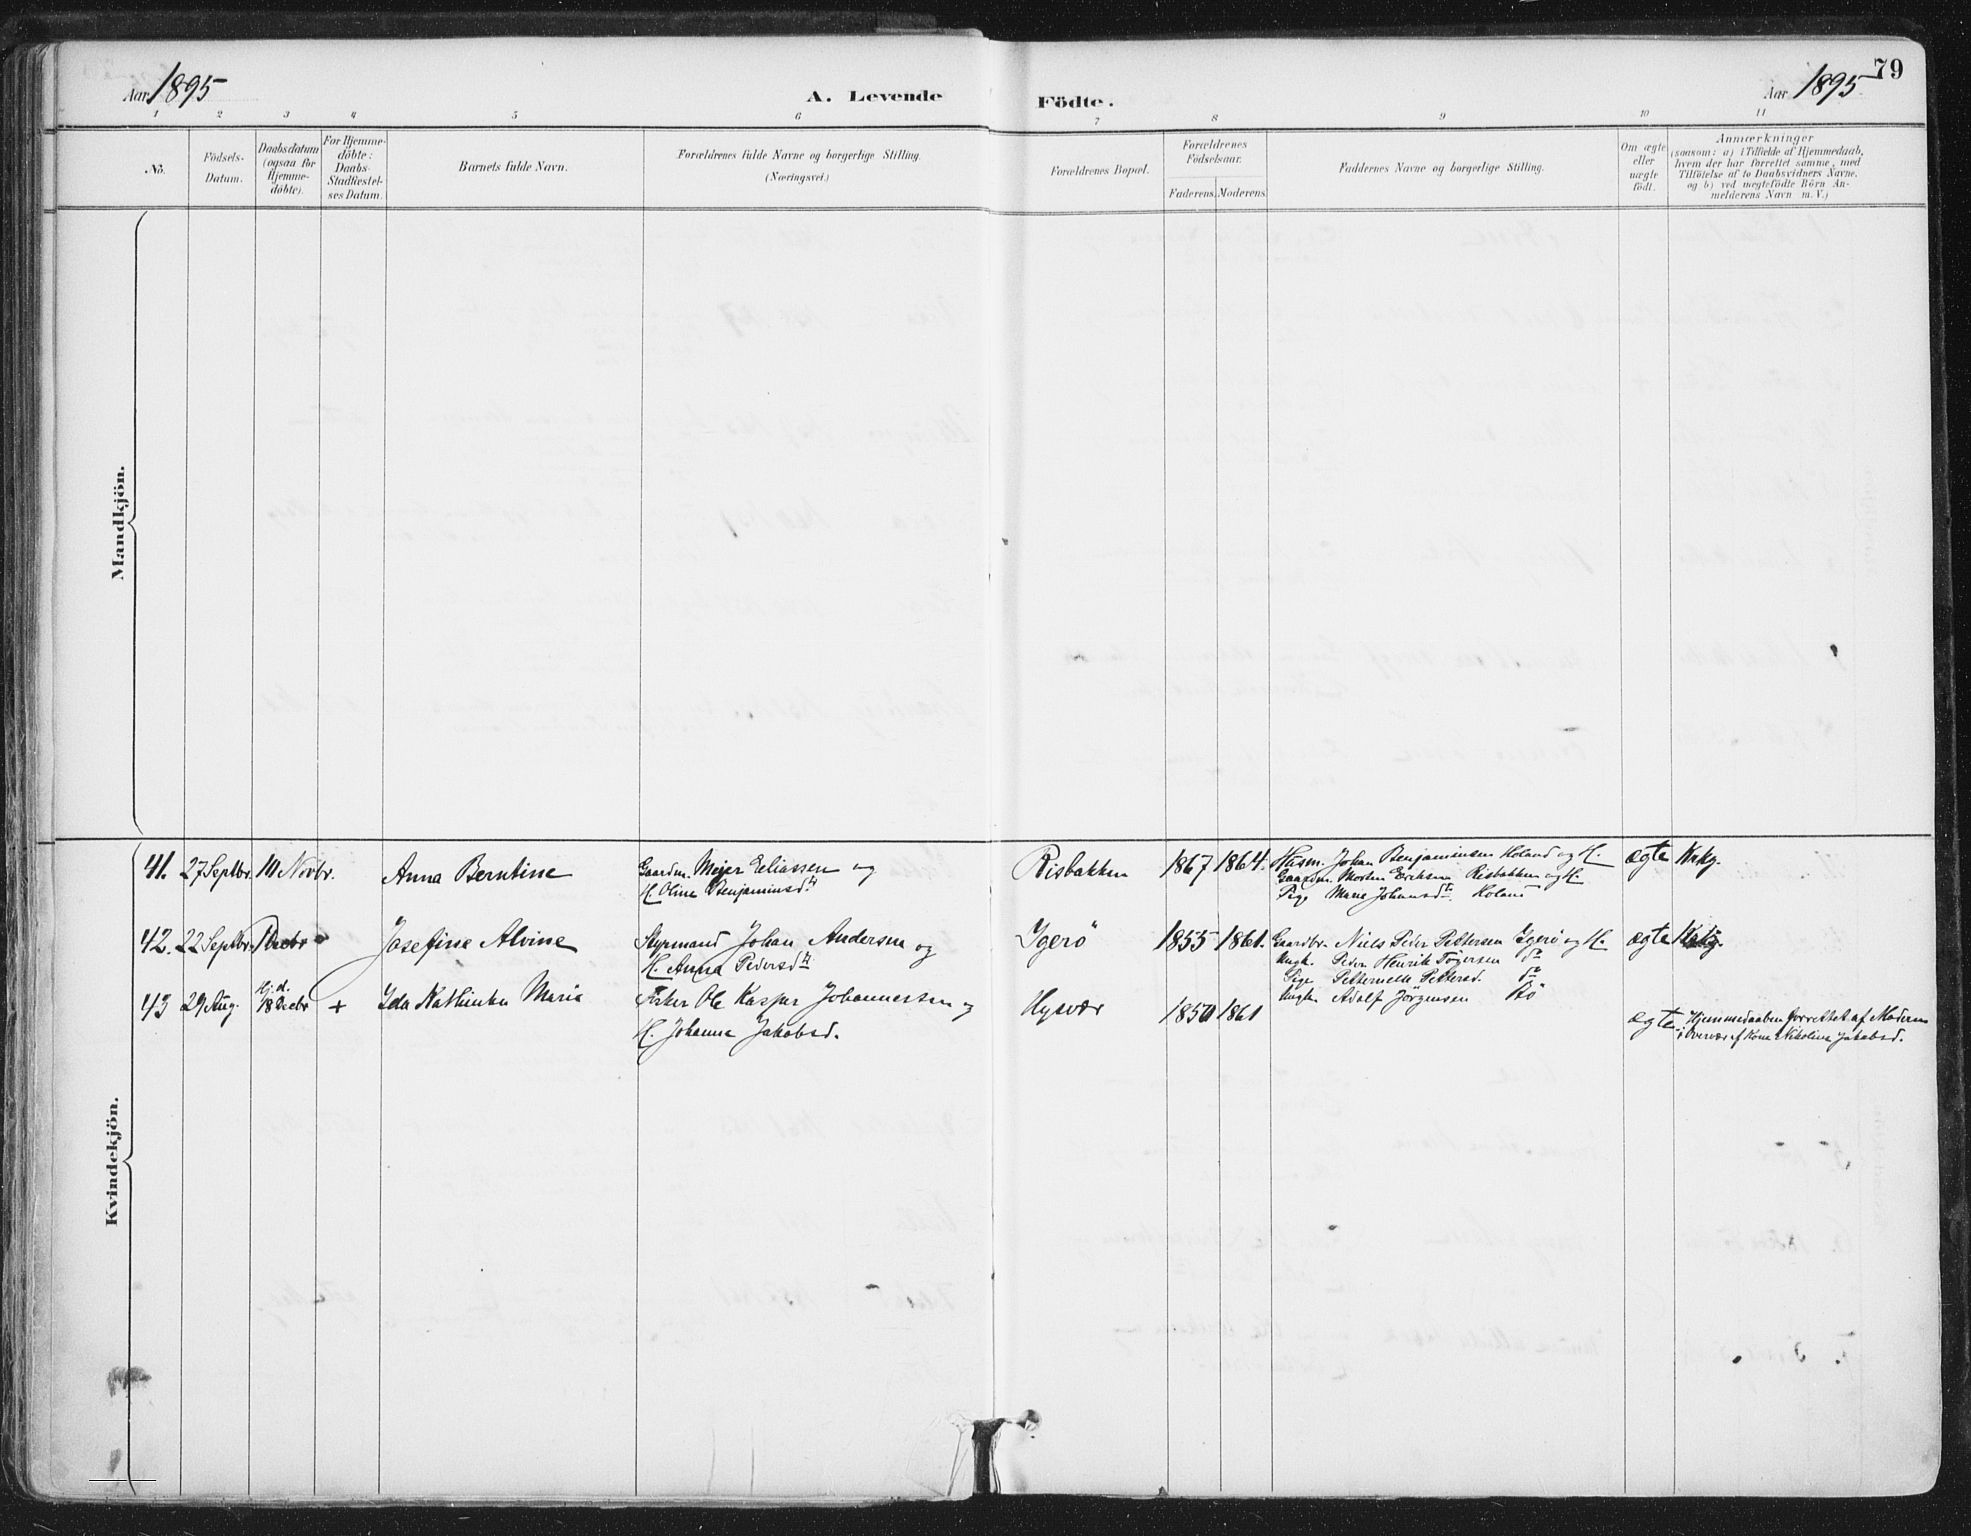 Aar 1895
A. Levende
Födte.
Aar 1895
79
1 2 3 4 5 6 7 8 9 10 11
No.
Födsels-
Datum.
Daabsdatum
(ogsaa for
Hjemme-
döbte).
For Hjemme-
döbte:
Daabs-
Stadfæstel-
ses Datum.
Barnets fulde Navn.
Forældrenes fulde Navne og borgerlige Stilling.
(Næringsvei.)
Forældrenes Bopæl.
Forældrenes
Födselsaar.
Faderens. Moderens.
Faddernes Navne og borgerlige Stilling.
Om ægte
eller
uægte
födt.
Anmærkninger
(saasom: a) i Tilfælde af Hjemmedaab,
hvem der har forrettet samme, med
Tilföielse af to Daabsvidners Navne,
og b) ved uægtefödte Börn An-
melderens Navn m. V.)
Mandkjön.
Kvindekjön.
41. 27 Septbr. 10 Novbr. Anna Berntine
Gaardm. Meyer Eeliassen og
H. Oline Benjaminsdtr
Risbakken 1867 1864.
Husm. Johan Benjaminsen Holand og H.
Gaardm. Morten Eriksen Risbakken og H.
Pige Marie Johansdtr. Holand
ægte Knkg.
42. 22 Septbr. 1 Decbr Josefine Alvine
Styrmand Johan Andersen og
H. Anna Pedersdtr
Ygerö 1855 1861.
Gaardbr. Niels Peder Pettersen Ygerö og H.
Ungk. Peder Henrik Tögersen do
Pige Petternelle Pettersd. do
Ungk. Adolf Jörgensen Rö
ægte Knkg.
43 29 Aug. Hj.d. 18 Decbr + Ida Kathinka Marie
Fisker Ole Kaspar Johannessen og
H. Johanna Jakobsd.
Hysvær 1850 1861
ægte
Hjemmedaaben forrettet af Moderen
i Overvær af Kone Nikoline Jakobsd.